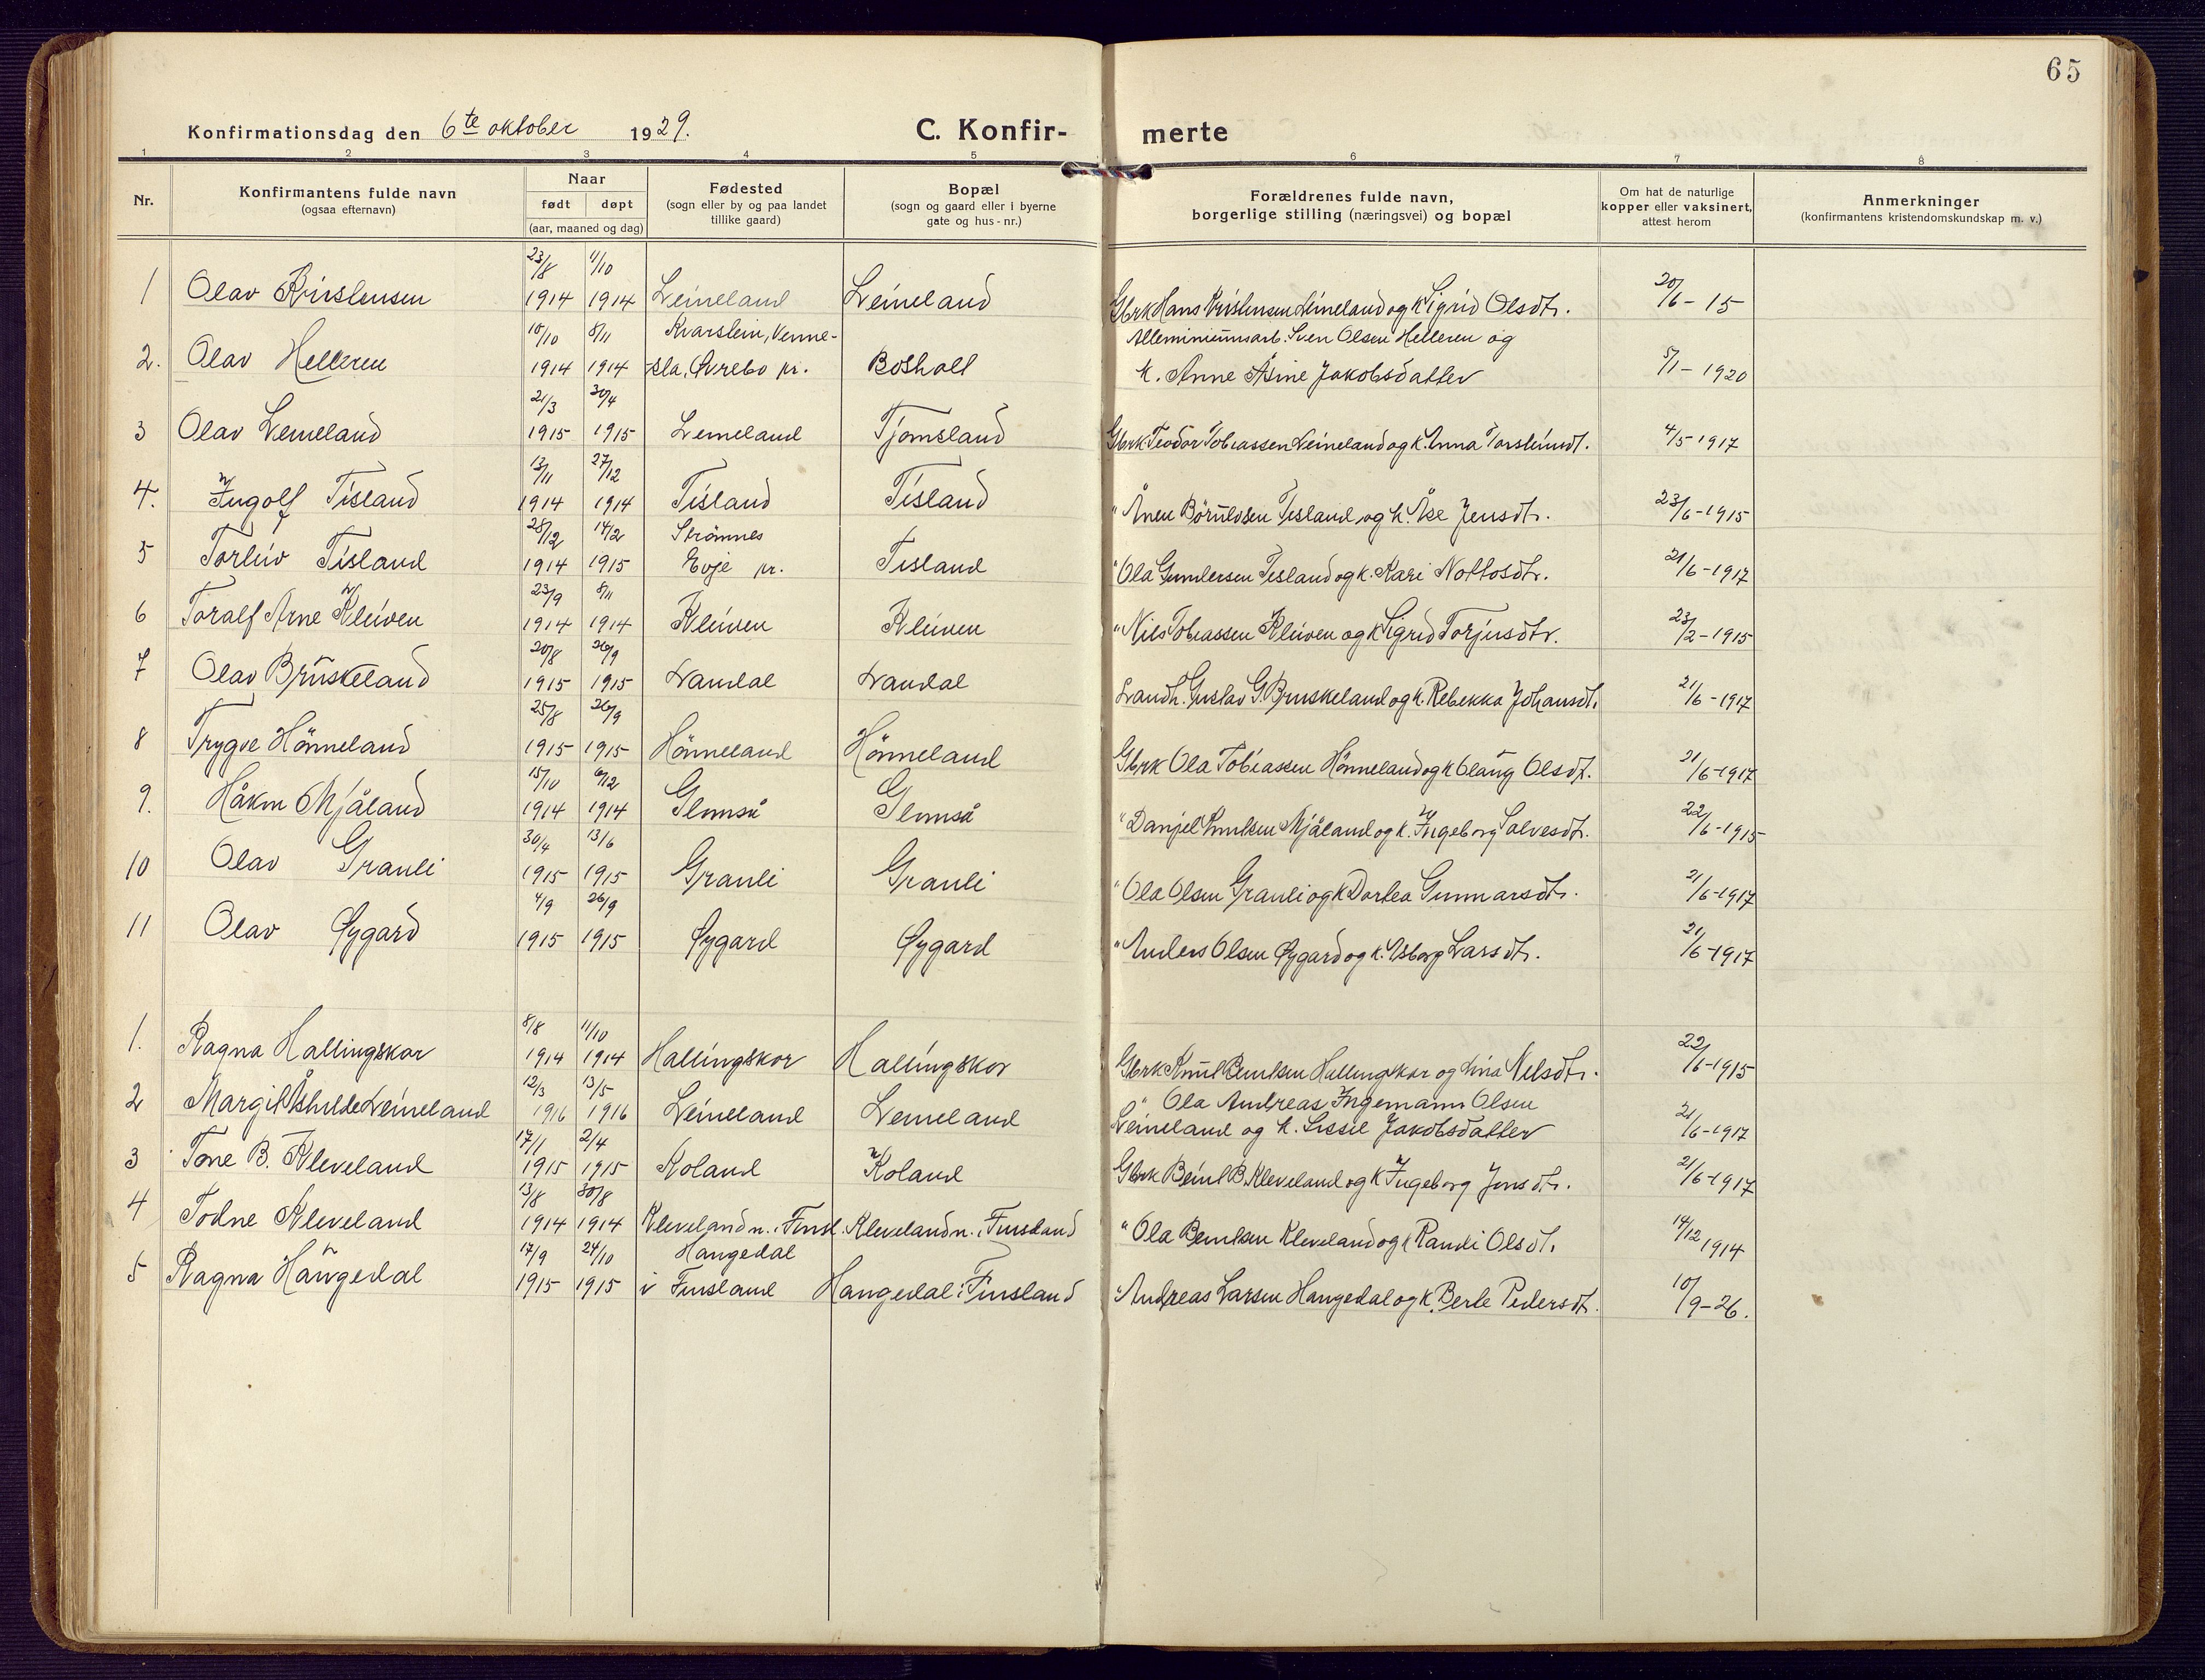 65
Konfirmationsdag den 6te oktober 1929.
C. Konfir-merte
1 2 3 4 5 6 7 8
Nr.
Konfirmantens fulde navn
(ogsaa efternavn)
Naar
født døpt
(aar, maaned og dag)
Fødested
(sogn eller by og paa landet
tillike gaard)
Bopæl
(sogn og gaard eller i byerne
gate og hus-nr.)
Forældrenes fulde navn,
borgerlige stilling (næringsvei) og bopæl
Om hat de naturlige
kopper eller vaksinert,
attest herom
Anmerkninger
(konfirmantens kristendomskundskap m. v.)
1 Olav Kristensen 23/8 1914 11/10 1914 Leineland Leineland Gbrk Hans Kristensen Leineland og k Sigrid Olsdtr. 20/6-15
2. Olav Helleren 10/10 1914 8/11 1914 Kvarstein, Vennesla, Øvrebo pr. Boshall Alleminiumsarb. Sven Olsen Helleren og
k. Anne Asine Jakobsdatter 5/1-1920
3 Olav Leineland 21/3 1915 30/4 1915 Leineland Tjomsland Gbrk Teodor Tobiassen Leineland og k. Anna Torsteinsdt. 4/5-1917
4. Ingolf Tisland 13/11 1914 27/12 1914 Tisland Tisland " Ånen Børuldsen Tisland og k. Åse Jensdtr. 23/6-1915
5 Torleiv Tisland 28/12 1914 14/2 1915 Strømnes Evje pr. Tisland " Ola Gundersen Tisland og k. Kari Nottosdtr. 21/6-1917
6 Toralf Arne Kleiven 23/9 1914 8/11 1914 Kleiven Kleiven " Nils Tobiassen Kleiven og k Sigrid Torjusdtr. 23/2-1915
7 Olav Bruskeland 20/8 1915 26/9 1915 Laudal Laudal Landh. Gustav G. Bruskeland og k. Rebekka Johansdt. 21/6-1917
8 Trygve Hønneland 25/8 1915 26/9 1915 Hønneland Hønneland Gbrk Ola Tobiassen Hønneland og k Olaug Olsdt. 21/6-1917
9. Håkon Mjåland 15/10 1914 6/12 1914 Glomså Glomså " Danjel Knutsen Mjåland og k. Ingeborg Salvesdt. 22/6-1915
10 Olav Granli 30/4 1915 13/6 1915 Granli Granli " Ola Olsen Granli og k Dortea Gunnarsdtr. 21/6-1917
11 Olav Øygard 4/9 1915 26/9 1915 Øygard Øygard " Anders Olsen Øygard og k. Asborg Larsdtr. 21/6-1917
1. Ragna Hallingskor 8/8 1914 11/10 1914 Hallingskor Hallingskor Gbrk Knut Bentsen Hallingskor og Lina Nilsdtr. 22/6-1915
2 Margit Åshilde Leineland 12/3 1916 13/5 1916 Leineland Leineland " Ola Andreas Ingemann Olsen
Leineland og k. Sissel Jakobsdatter 21/6-1917
3 Tone B. Kleveland 17/1 1915 2/4 1915 Koland Koland Gbrk Beint B. Kleveland og k Ingeborg Jonsdtr. 21/6-1917
4 Todne Kleveland 13/8 1914 30/8 1914 Kleveland n. i Finsl. Kleveland n. i Finsland " Ola Bentsen Kleveland og k Randi Olsdt. 14/12 1914
5 Ragna Haugedal 17/9 1915 24/10 1915 Haugedal i Finsland Haugedal i Finsland " Andreas Larsen Haugedal og k. Berte Pedersdt. 10/9-26.